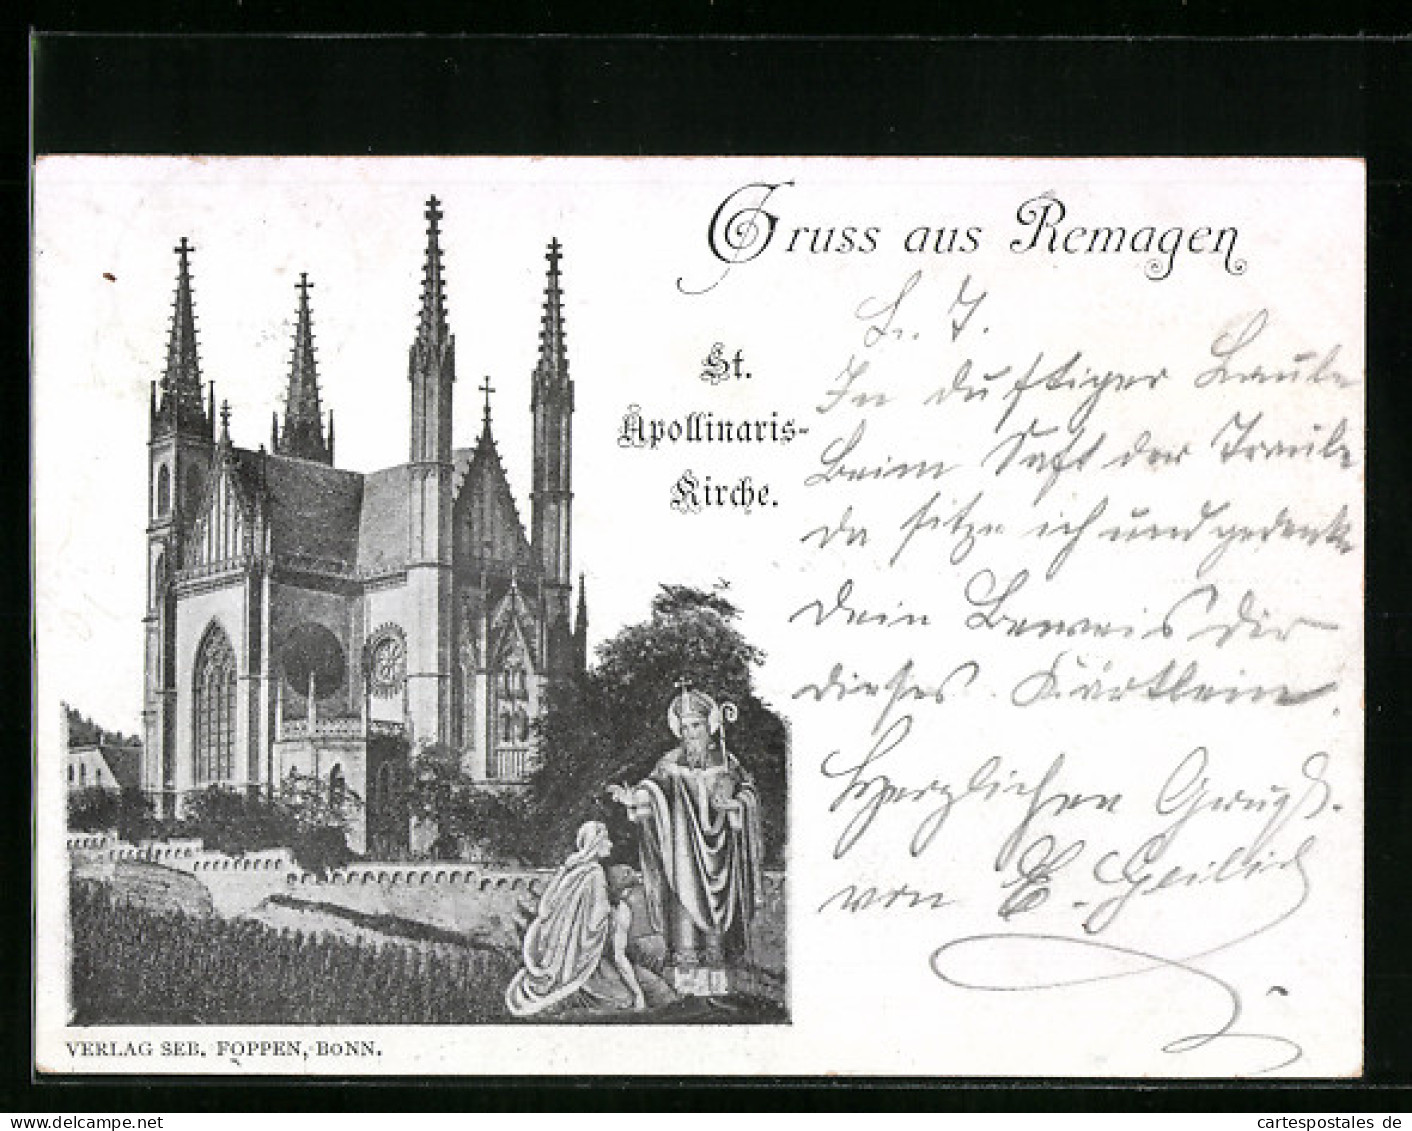 Gruss aus Remagen
St.
Apollinaris-
Kirche.
L. J.
In duftiger Laube
beim Saft der Traube
da sitze ich und gedenke
dein Beweis dir
dieses Kärtlein.
Herzlichen Gruß.
von E.
VERLAG SEB. FOPPEN, BONN.
cartespostales de
www.delcampe.net